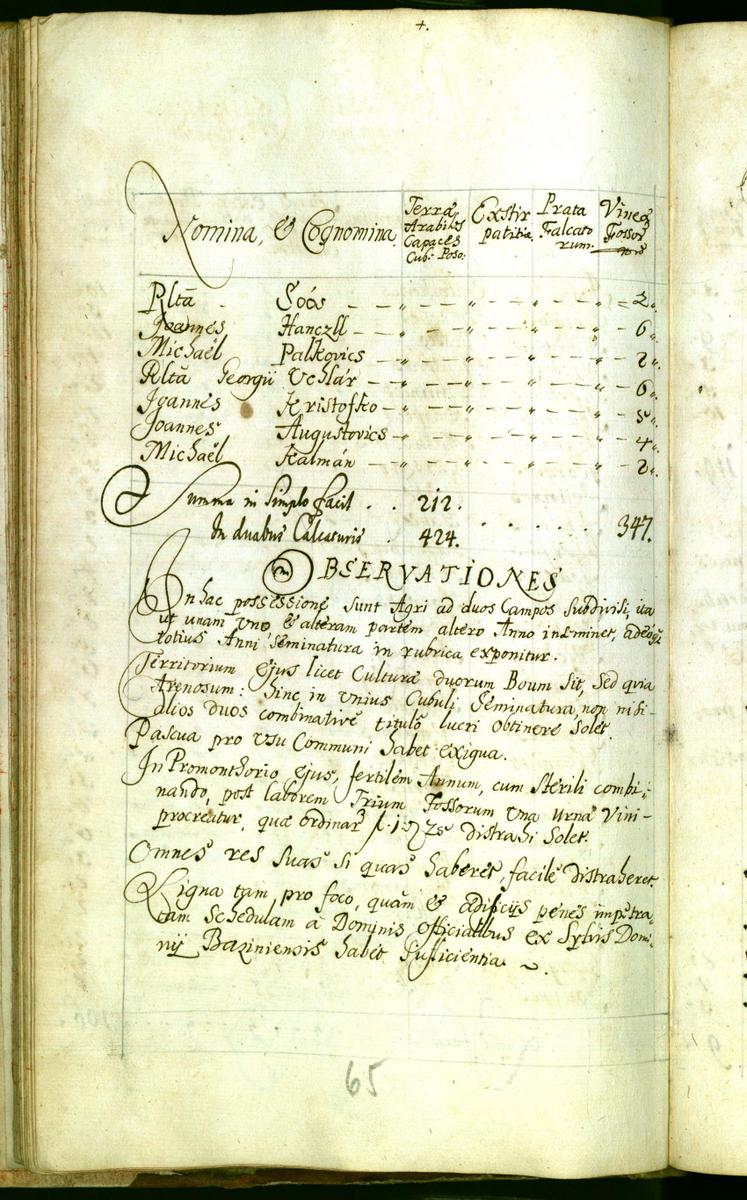 4.
Nomina, & Cognomina. Terræ Arabiles Capaces Cub: Poso: Exstirpatitia Prata Falcatorum. Vineæ Fossorum
Rlta Soós 2
Joannes Hanczll 6
Michaël Palkovics 2
Rlta Georgii Uchlár 6
Joannes Kristofko 5
Joannes Augustovics 4
Michaël Kalmán 2
Summa in Simplo facit . . 212.
In duabus Calcaturis . 424. . . . . . 347.
OBSERVATIONES
In hac possessione sunt Agri ad duos Campos Subdivisi, ita
ut unam uno & alteram partem altero Anno inseminet, adeoq
totius Anni Seminatura in rubrica exponitur.
Territorium ejus licet Cultura duorum Boum sit, Sed quia
Arenosum: Hinc in Unius Cubuli Seminatura, non nisi
alios duos combinativè titulo lucri obtinere Solet.
Pascua pro Usu Communi habet exigua.
In Promonthorio ejus, fertilem Annum, cum Sterili combi-
nando, post laborem Trium Fossorum Una Urna Vini
procreatur, quæ ordinar distrahi Solet.
Omnes res Suas si quas haberet, facile distraheret.
Ligna tam pro foco, quam & ædificijs penes impetra-
tam Schedulam à Dominis Officialibus ex Sylvis Domi-
nij Baziniensis habet Sufficientia
65